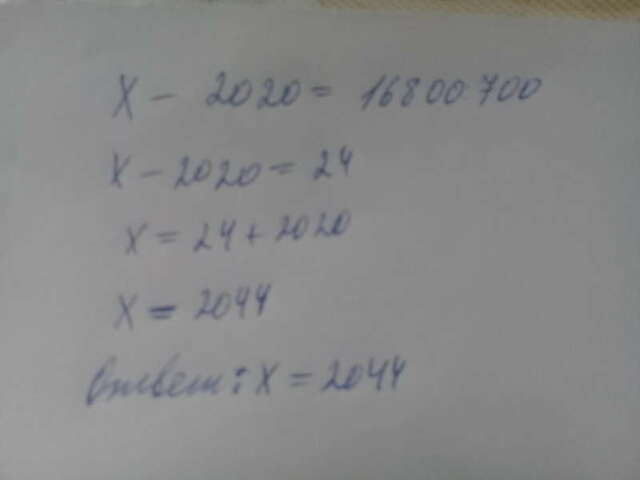 X - 2020 = 16800:700
X - 2020 = 24
X = 24 + 2020
X = 2044
Ответ: X = 2044